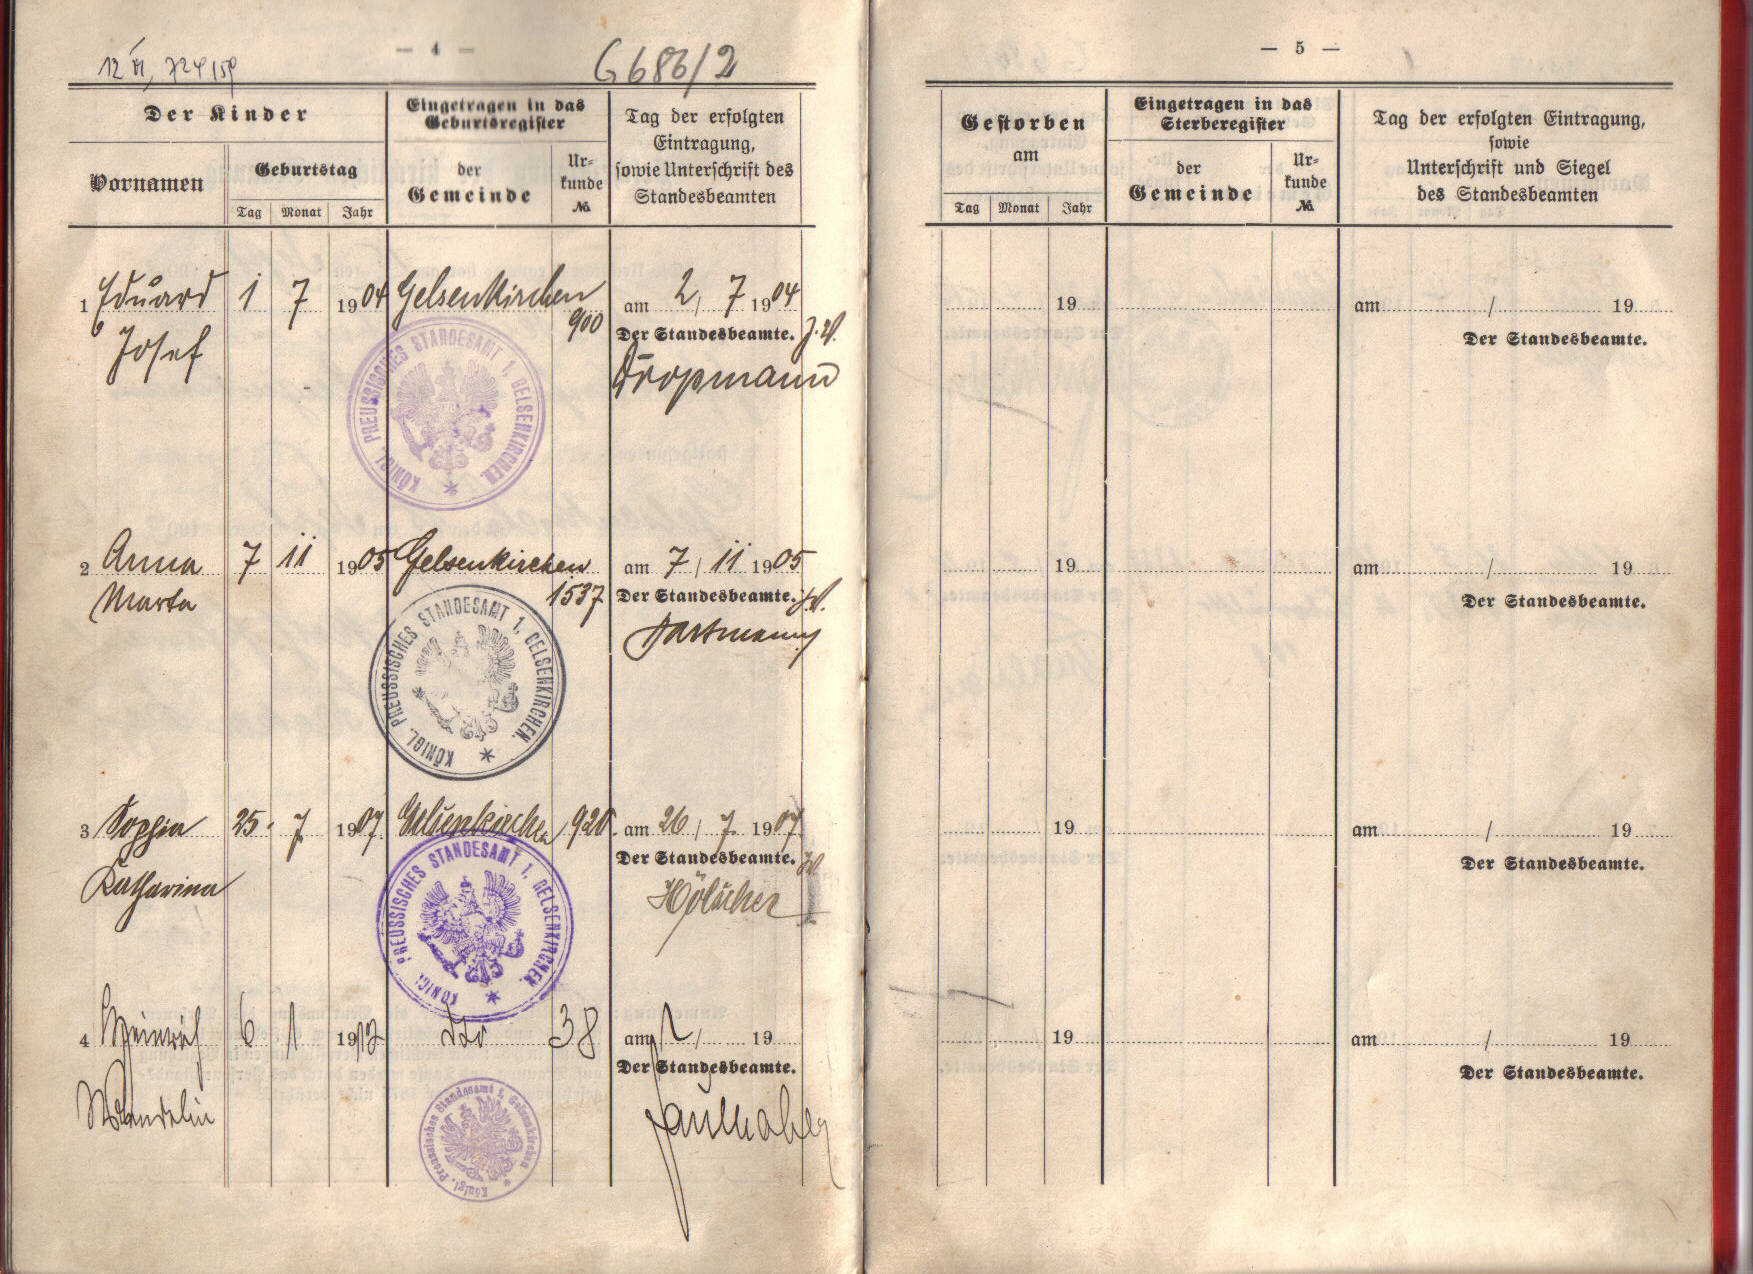 — 4 —
G 686/2
Der Kinder
Eingetragen in das
Geburtsregister
Tag der erfolgten
Eintragung,
sowie Unterschrift des
Standesbeamten
Vornamen
Geburtstag
Tag Monat Jahr
der
Gemeinde
Ur-
kunde
No.
1 Eduard 1 7 1904 Gelsenkirchen 900 am 2/7 1904
Josef
Der Standesbeamte. J.V.
Tropmann
KÖNIGL. PREUSSISCHES STANDESAMT 1, GELSENKIRCHEN.
2 Anna 7 11 1905 Gelsenkirchen 1537 am 7/11 1905
Marta
Der Standesbeamte. J.V.
Hartmann
KÖNIGL. PREUSSISCHES STANDESAMT 1, GELSENKIRCHEN.
3 Sophia 25. 7. 1907. Gelsenkirchen 920. am 26/7. 1907.
Katharina
Der Standesbeamte. J.V.
Hölscher
KÖNIGL. PREUSSISCHES STANDESAMT 1, GELSENKIRCHEN.
4 Heinrich 6 1 1912 dto 38 am / 19
Wendelin
Der Standesbeamte.
Faulhaber
Königl. Preussisches Standesamt 1, Gelsenkirchen
— 5 —
Gestorben
am
Tag Monat Jahr
Eingetragen in das
Sterberegister
der
Gemeinde
Ur-
kunde
No.
Tag der erfolgten Eintragung,
sowie
Unterschrift und Siegel
des Standesbeamten
19 am / 19
Der Standesbeamte.
19 am / 19
Der Standesbeamte.
19 am / 19
Der Standesbeamte.
19 am / 19
Der Standesbeamte.